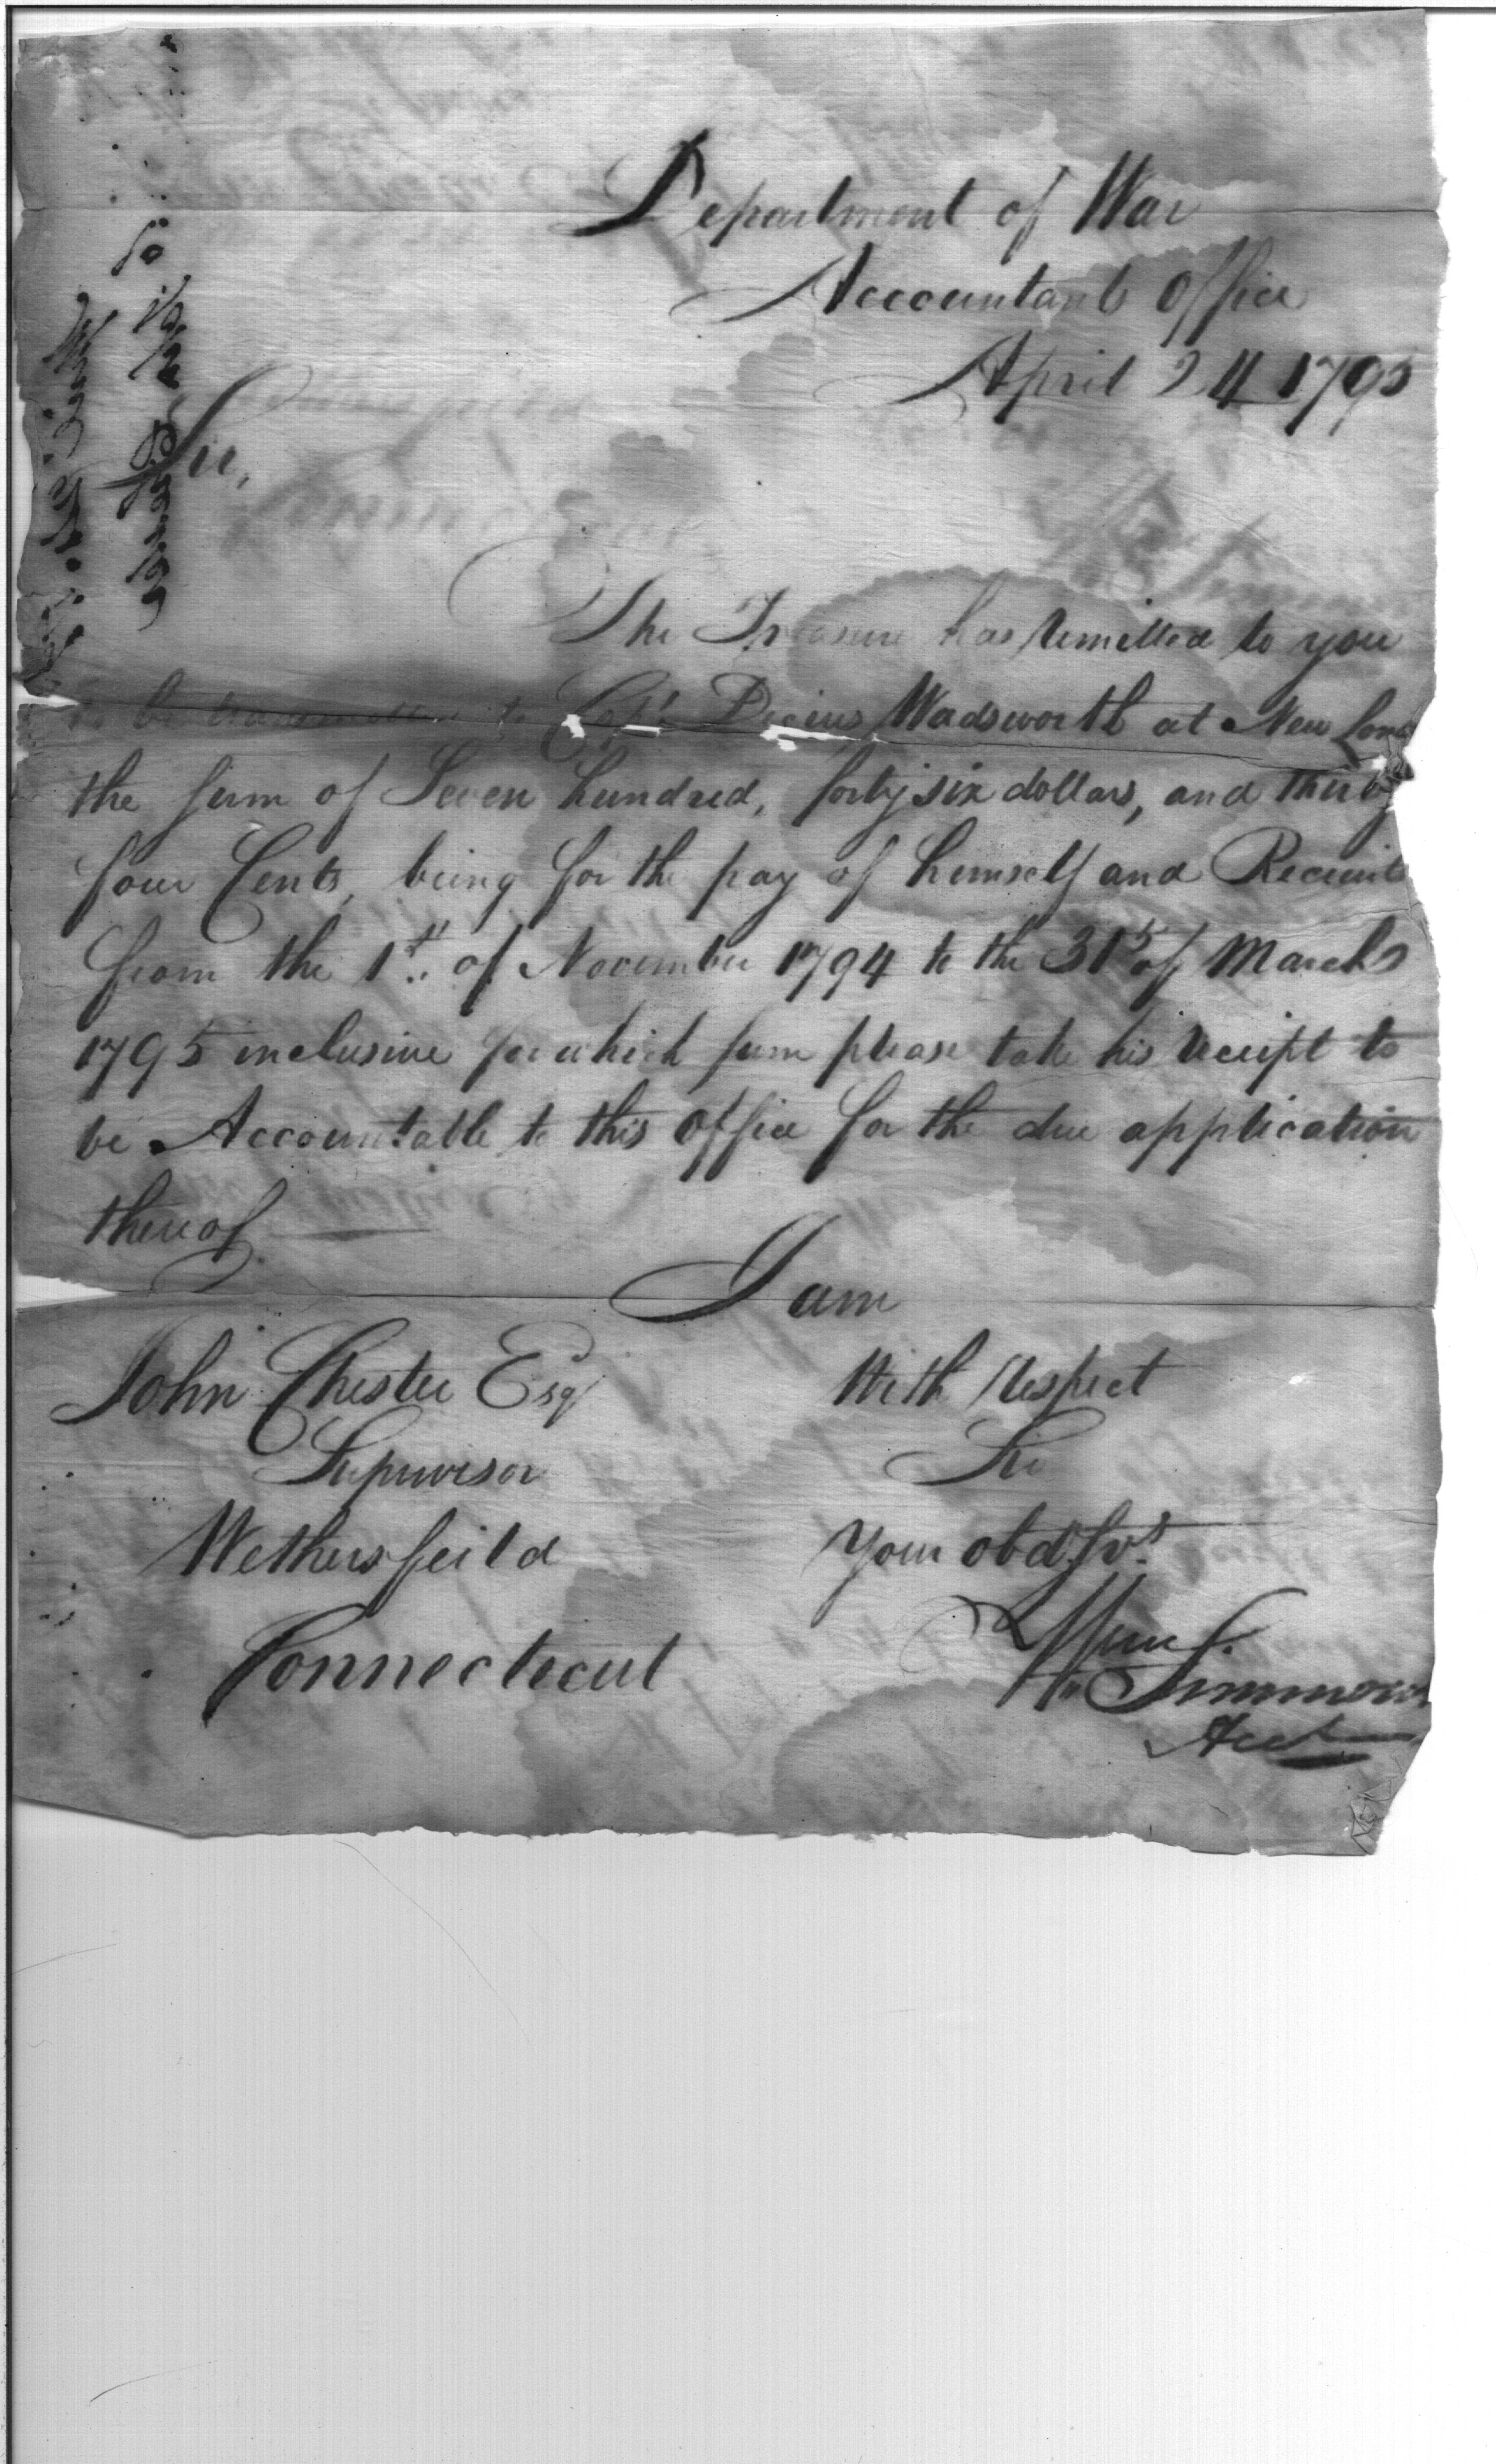 Department of War
Accountants Office
April 24 1795
Sir,
The Treasurer has remitted to you
to be transmitted to Capt. Decius Wadsworth at New Lond
the sum of Seven hundred, forty six dollars, and thirty
four Cents, being for the pay of himself and Recruits
from the 1st. of November 1794 to the 31st of March
1795 inclusive for which sum please take his receipt to
be Accountable to this Office for the due application
thereof
I am
With respect
Sir
Your obd. Svt.
Wm Simmons
Acct
John Chester Esqr
Supervisor
Wethersfeild
Connecticut